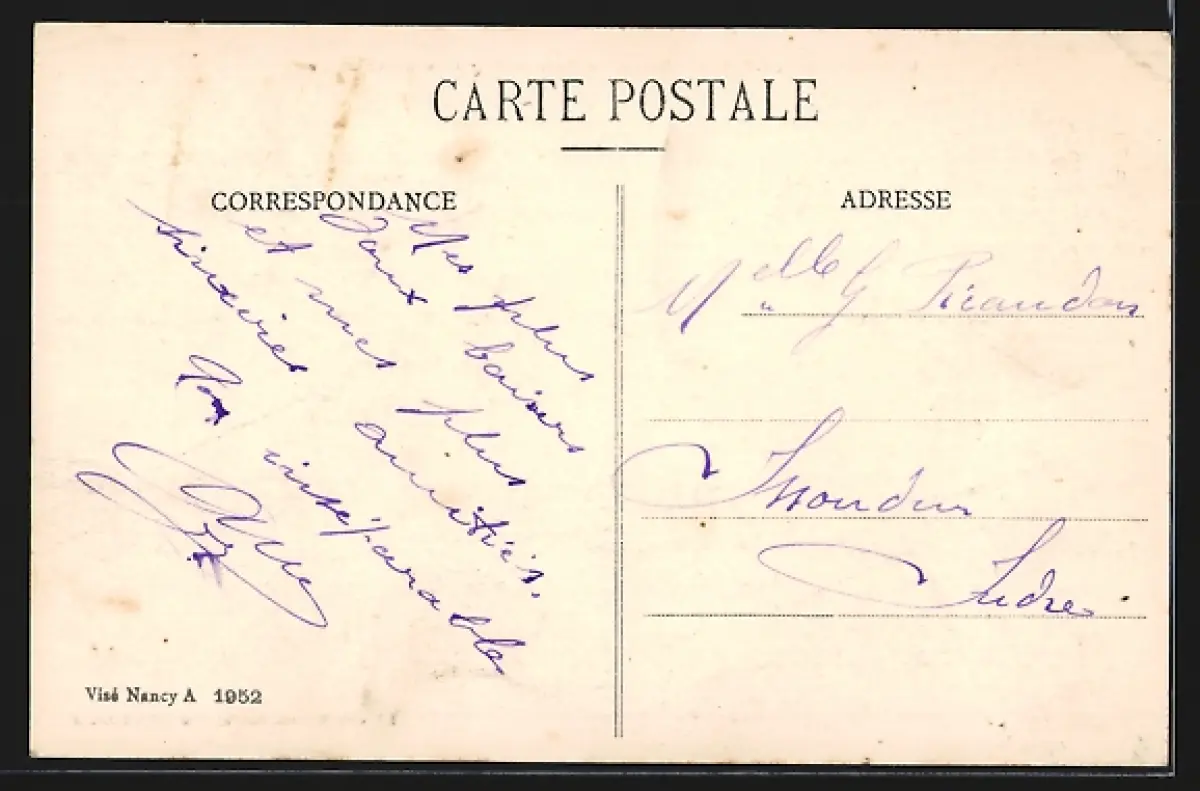 CARTE POSTALE
CORRESPONDANCE
Mes plus
doux baisers
et mes plus
sincères amitiés.
Ton inséparable
ADRESSE
Melle G. Pirandon
Issoudun
Indre
Visé Nancy A 1952